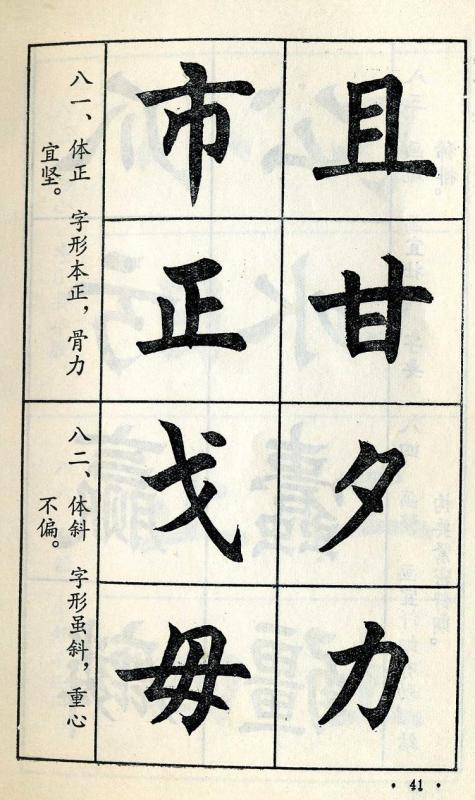 且甘夕力
市正戈毋
八一、体正　字形本正，骨力
宜坚。
八二、体斜　字形虽斜，重心
不偏。
· 41 ·